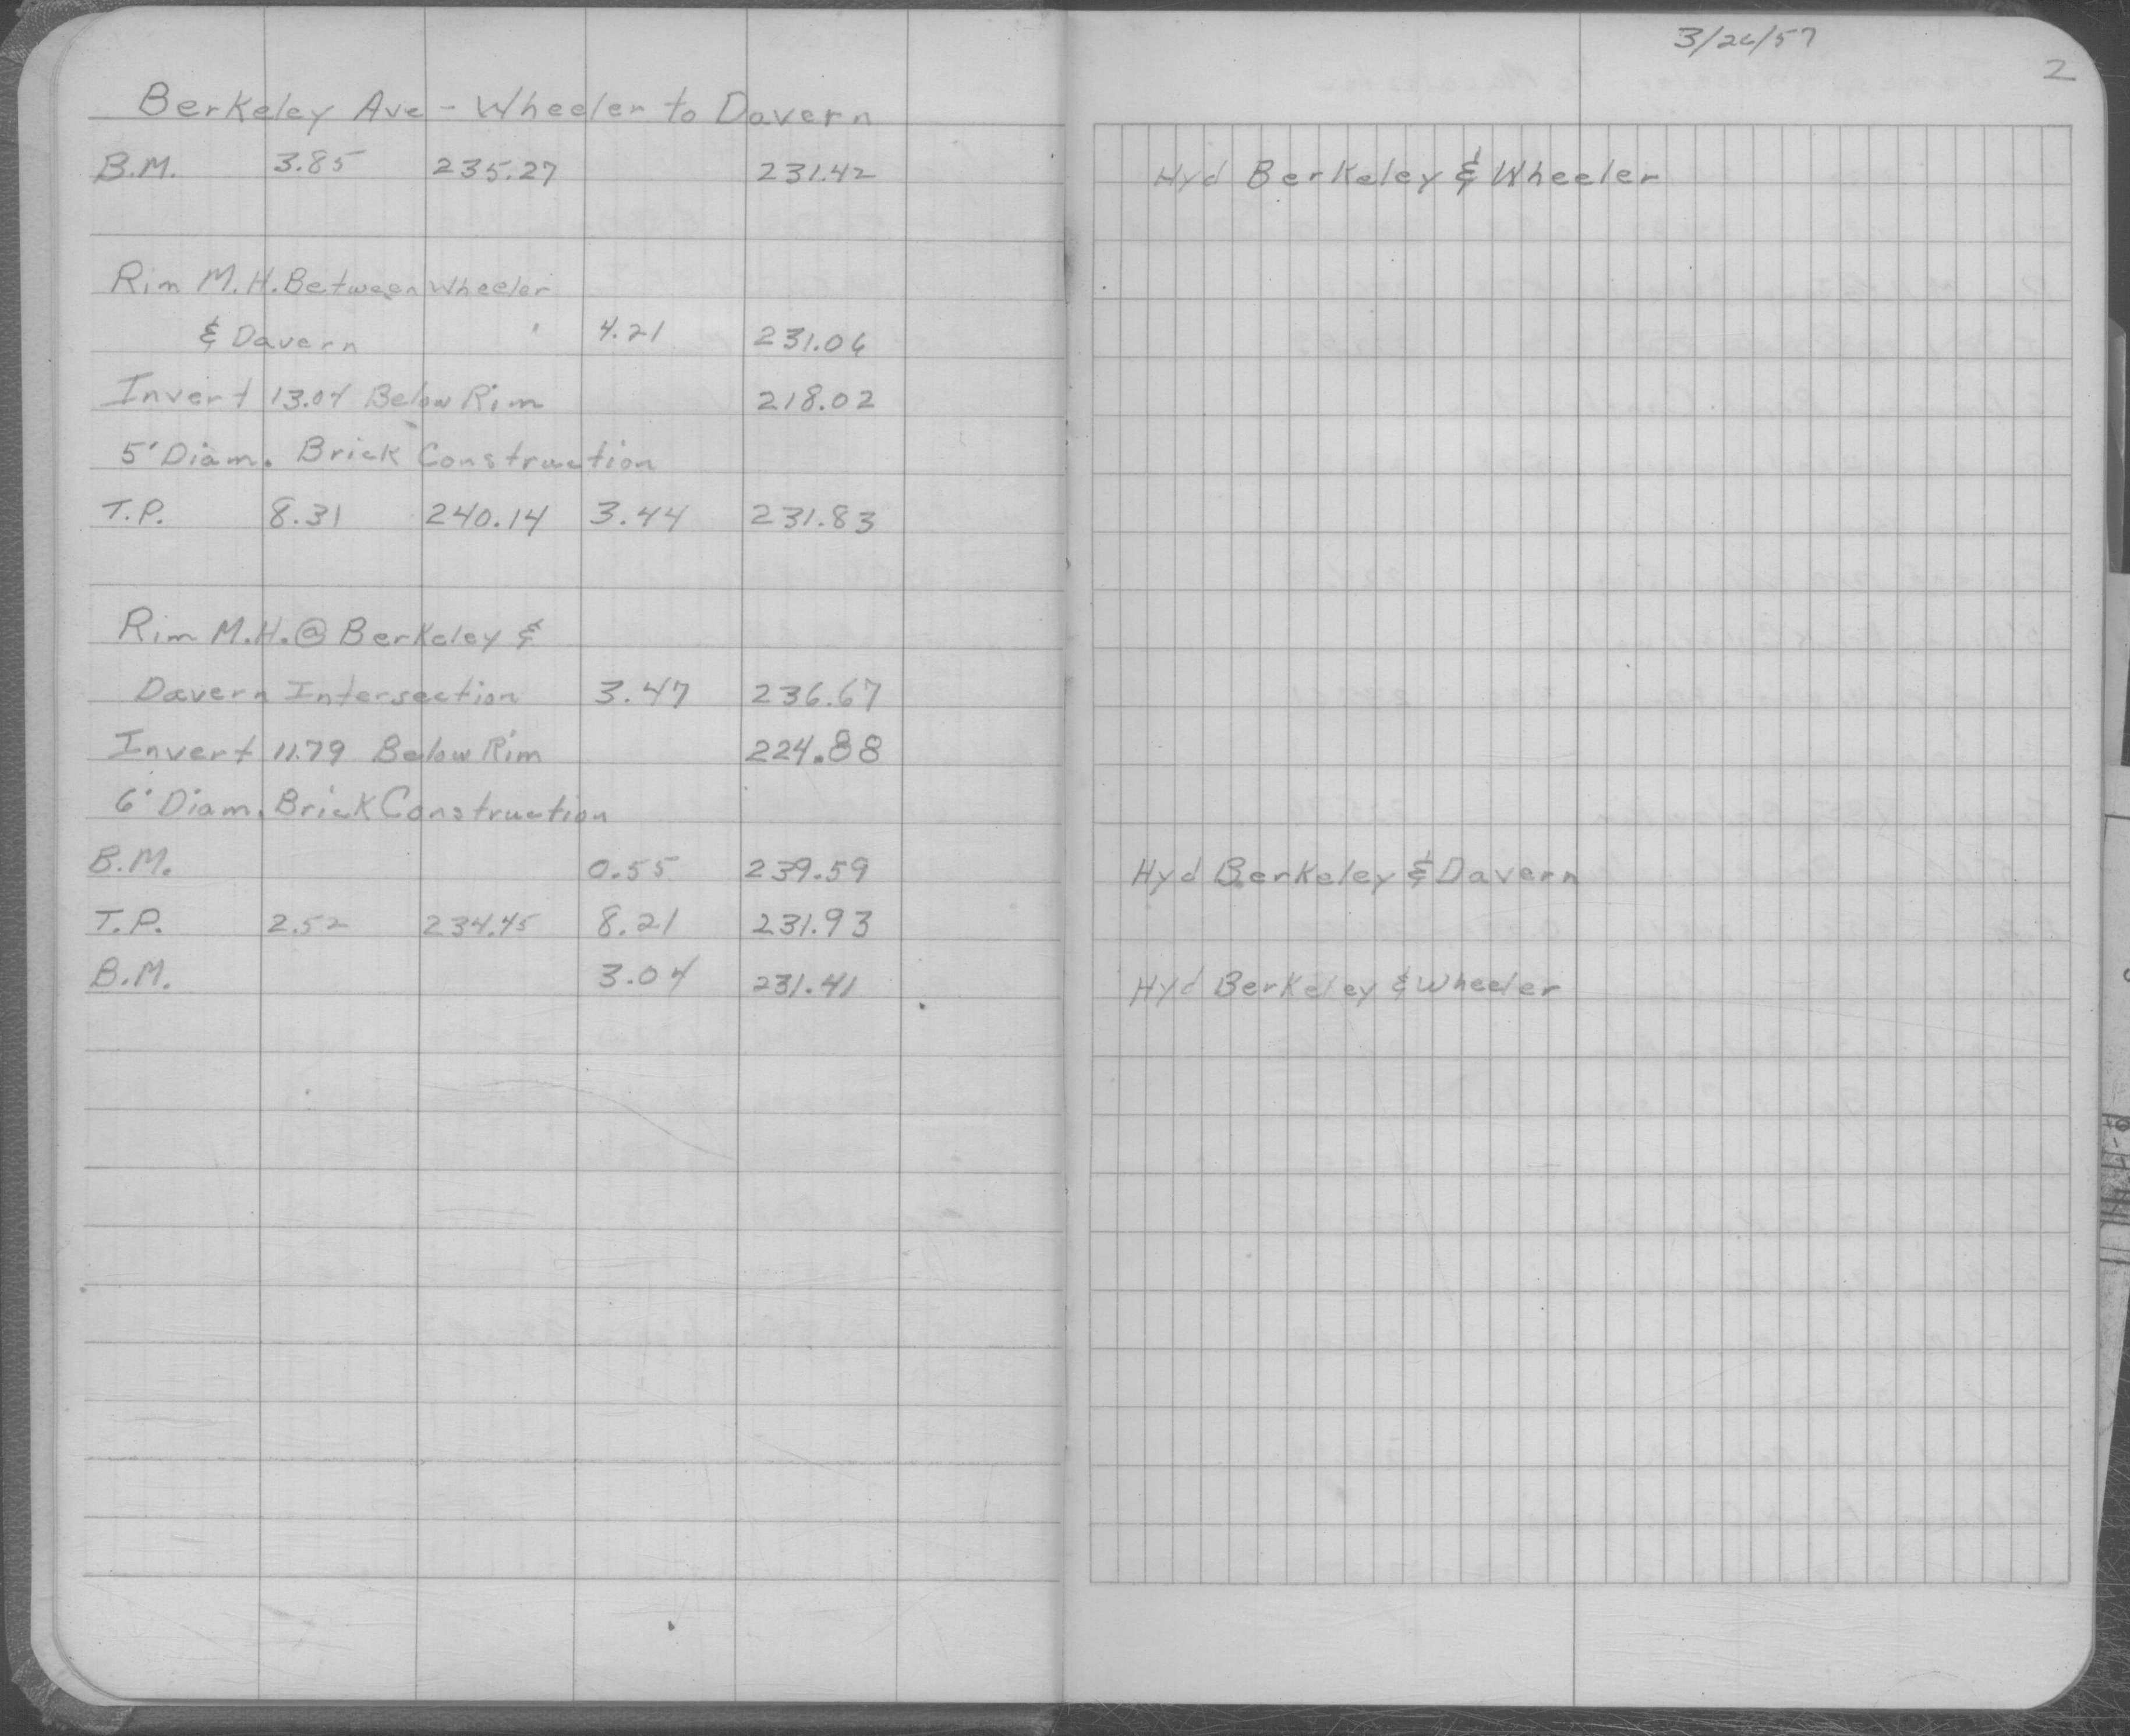 Berkeley Ave - Wheeler to Davern
B.M. 3.85 235.27 231.42
Rim M.H. Between Wheeler
& Davern 4.21 231.06
Invert 13.04 Below Rim 218.02
5' Diam. Brick Construction
T.P. 8.31 240.14 3.44 231.83
Rim M.H. @ Berkeley &
Davern Intersection 3.47 236.67
Invert 11.79 Below Rim 224.88
6' Diam. Brick Construction
B.M. 0.55 239.59
T.P. 2.52 234.45 8.21 231.93
B.M. 3.04 231.41
3/26/57
2
Hyd Berkeley & Wheeler
Hyd Berkeley & Davern
Hyd Berkeley & Wheeler